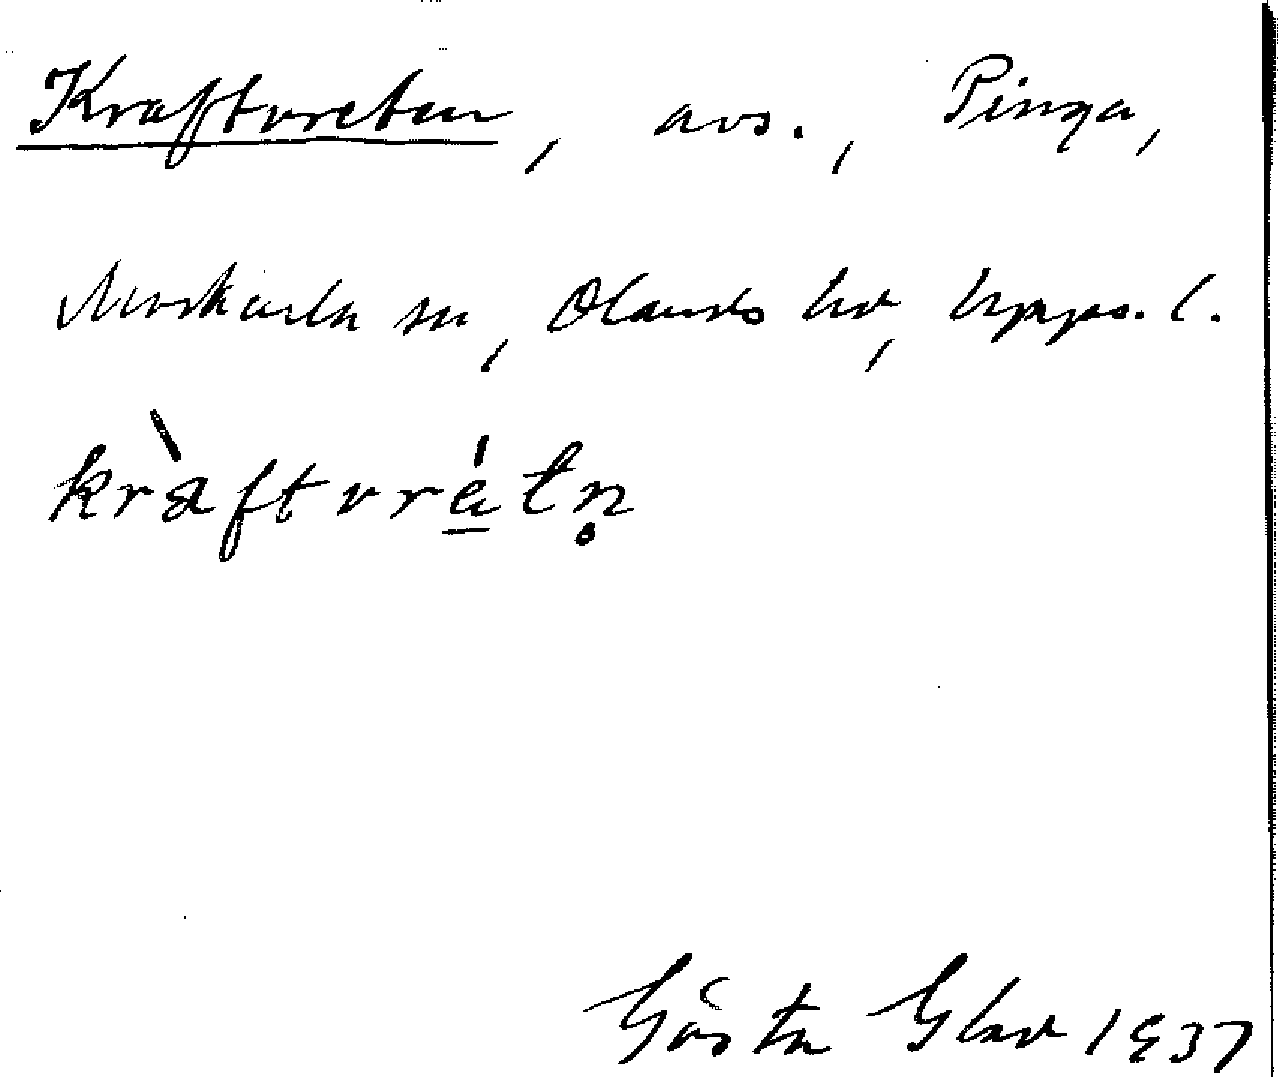 Kraftvreten, avs., Pinga,
Morkarla sn, Olands hd, Upps. l.
kràftvrétn̥
Gösta Glav 1937